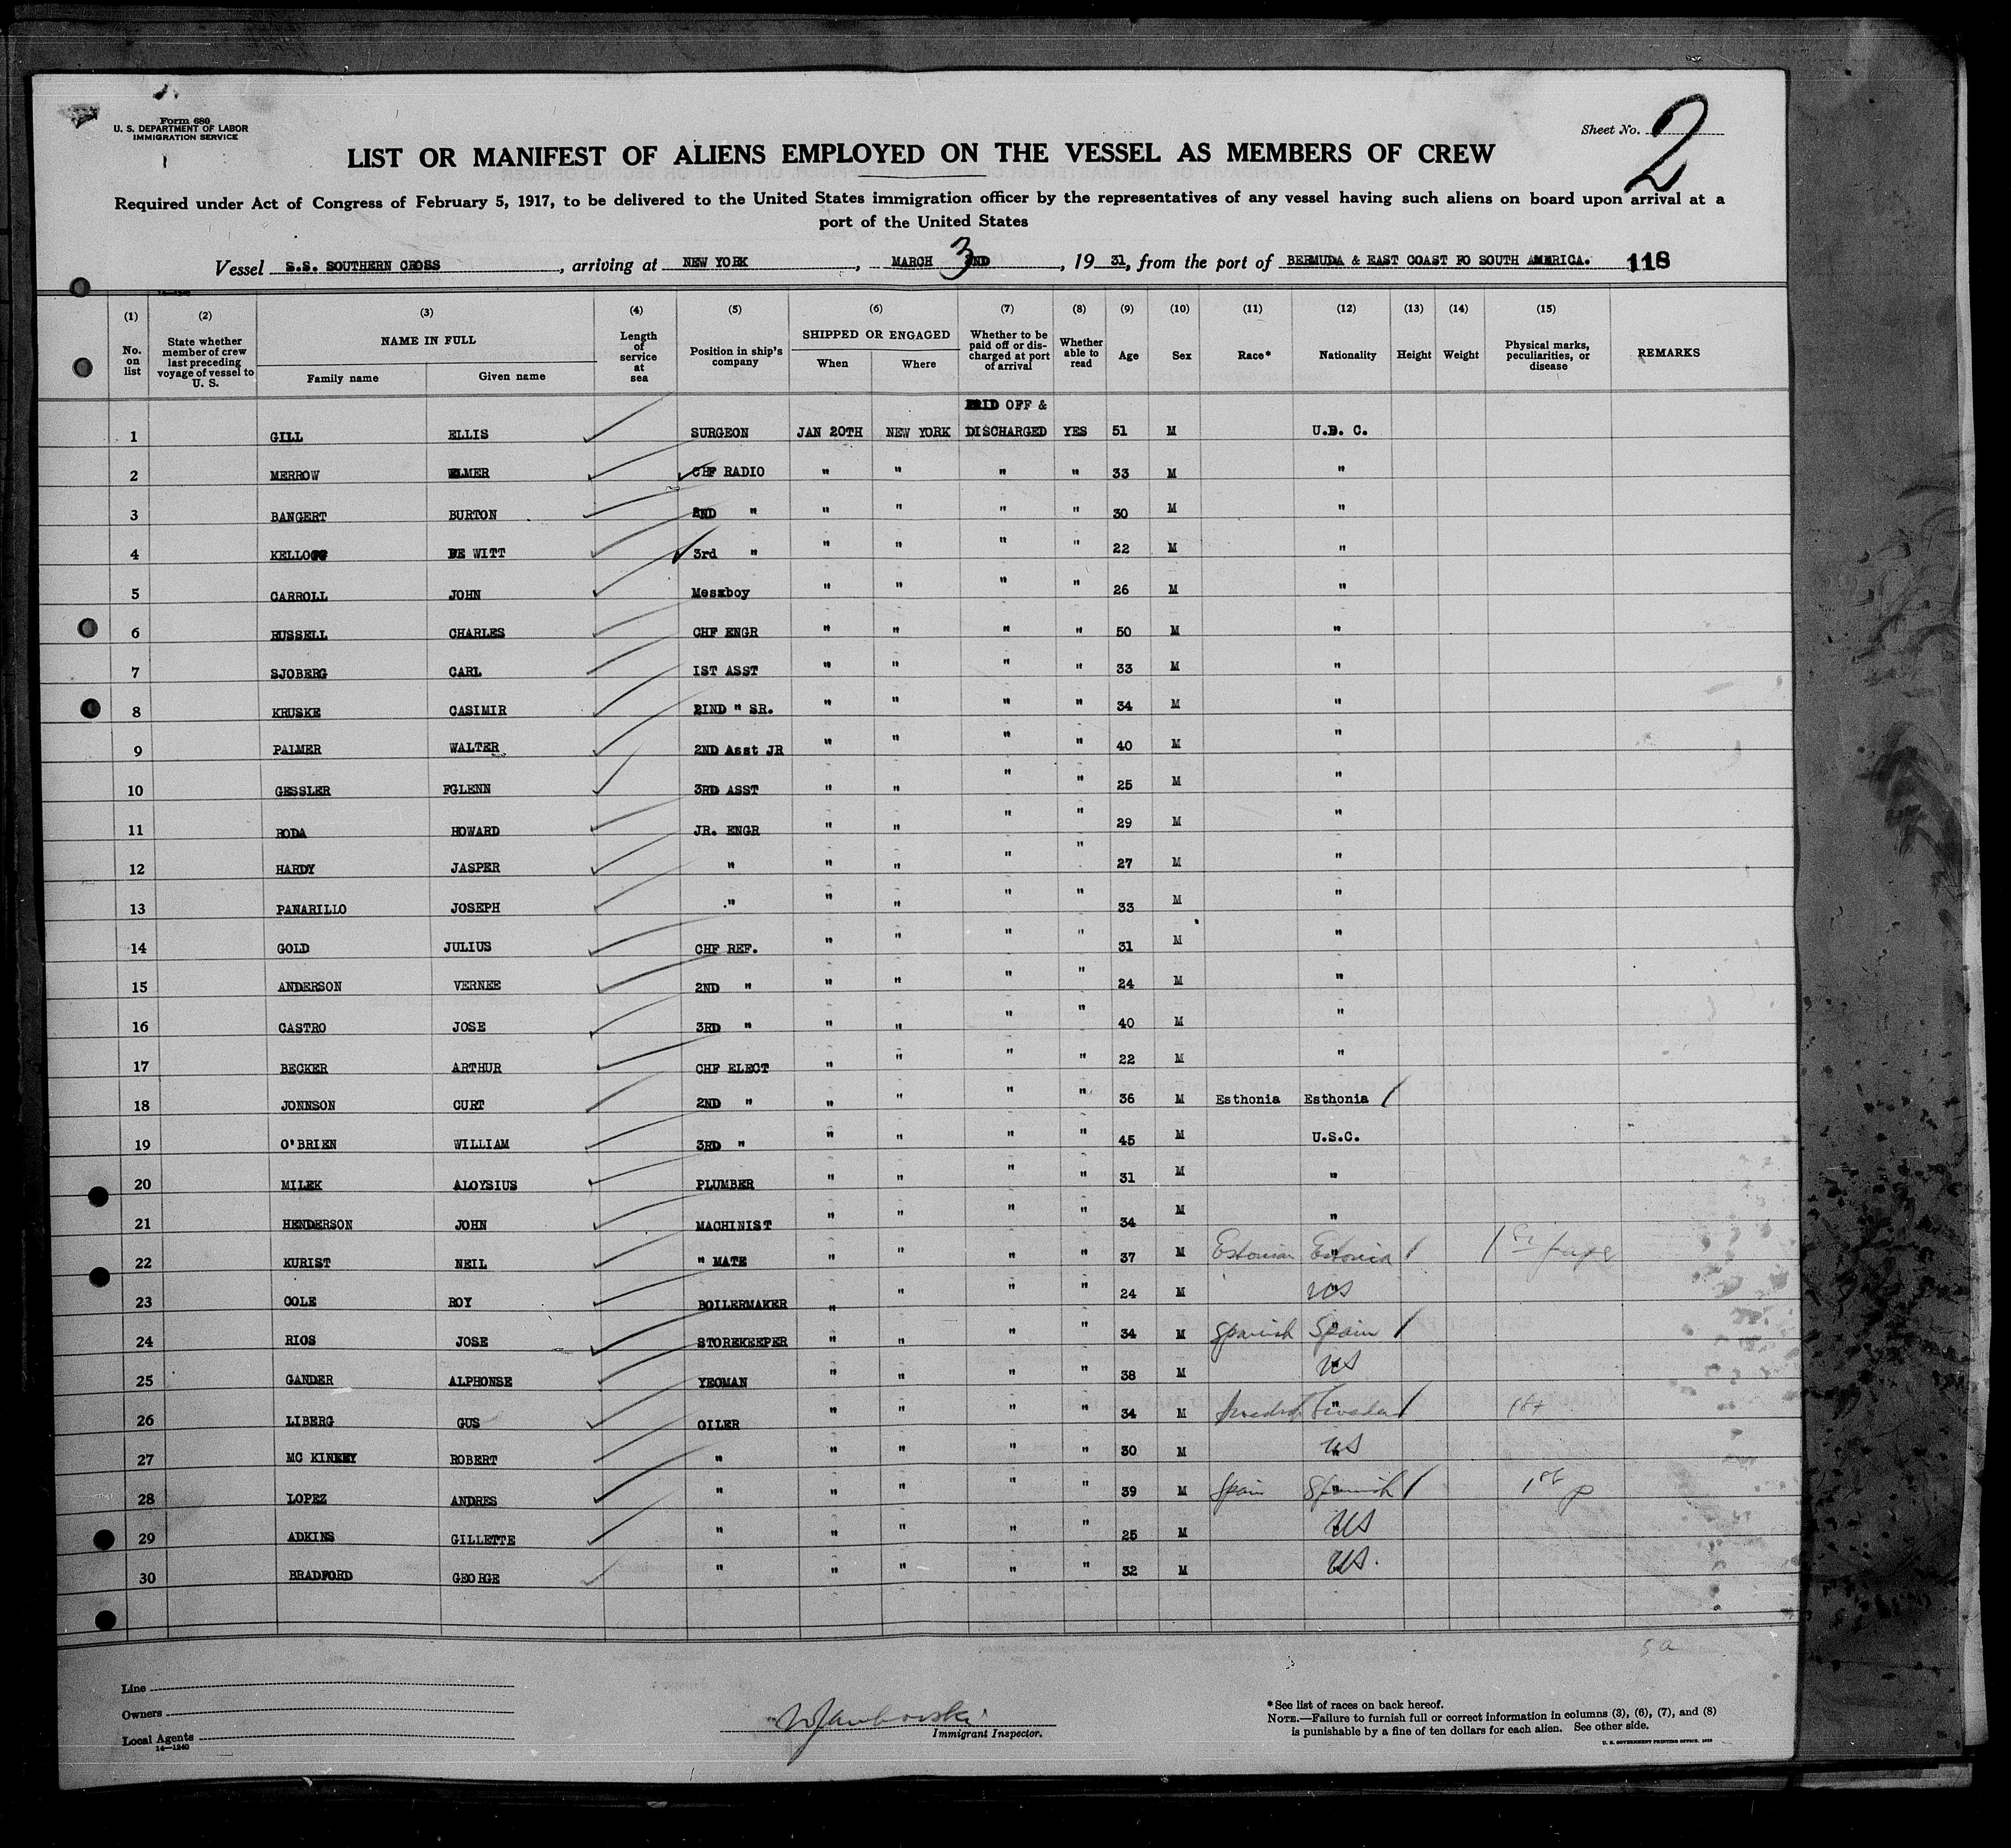 Form 680
U. S. DEPARTMENT OF LABOR
IMMIGRATION SERVICE
Sheet No. 2
LIST OR MANIFEST OF ALIENS EMPLOYED ON THE VESSEL AS MEMBERS OF CREW
Required under Act of Congress of February 5, 1917, to be delivered to the United States immigration officer by the representatives of any vessel having such aliens on board upon arrival at a
port of the United States
Vessel S.S. SOUTHERN CROSS, arriving at NEW YORK, MARCH 3 2ND, 19 31, from the port of BERMUDA & EAST COAST FO SOUTH AMERICA. 118
(1) No. on list (2) State whether member of crew last preceding voyage of vessel to U. S. (3) NAME IN FULL Family name Given name (4) Length of service at sea (5) Position in ship's company (6) SHIPPED OR ENGAGED When Where (7) Whether to be paid off or discharged at port of arrival (8) Whether able to read (9) Age (10) Sex (11) Race* (12) Nationality (13) Height (14) Weight (15) Physical marks, peculiarities, or disease REMARKS
PAID OFF &
1 GILL ELLIS SURGEON JAN 20TH NEW YORK DISCHARGED YES 51 M U.S. C.
2 MERROW ELMER CHF RADIO " " " " 33 M "
3 BANGERT BURTON 2ND " " " " " 30 M "
4 KELLOGG DE WITT 3rd " " " " " 22 M "
5 CARROLL JOHN Messboy " " " " 26 M "
6 RUSSELL CHARLES CHF ENGR " " " " 50 M "
7 SJOBERG CARL 1ST ASST " " " " 33 M "
8 KRUSKE CASIMIR 2IND " SR. " " " " 34 M "
9 PALMER WALTER 2ND Asst JR " " " " 40 M "
10 GESSLER FGLENN 3RD ASST " " " " 25 M "
11 RODA HOWARD JR. ENGR " " " " 29 M "
12 HARDY JASPER " " " " " 27 M "
13 PANARILLO JOSEPH " " " " " 33 M "
14 GOLD JULIUS CHF REF. " " " " 31 M "
15 ANDERSON VERNEE 2ND " " " " " 24 M "
16 CASTRO JOSE 3RD " " " " " 40 M "
17 BECKER ARTHUR CHF ELECT " " " " 22 M "
18 JONNSON CURT 2ND " " " " " 36 M Esthonia Esthonia /
19 O'BRIEN WILLIAM 3RD " " " " " 45 M U.S.C.
20 MILEK ALOYSIUS PLUMBER " " " " 31 M "
21 HENDERSON JOHN MACHINIST " " " " 34 M "
22 KURIST NEIL " MATE " " " " 37 M Estonian Estonia /
23 COLE ROY BOILERMAKER " " " " 24 M US
24 RIOS JOSE STOREKEEPER " " " " 34 M Spanish Spain /
25 GANDER ALPHONSE YEOMAN " " " " 38 M US
26 LIBERG GUS OILER " " " " 34 M Sweden / 1st
27 MC KINNEY ROBERT " " " " " 30 M US
28 LOPEZ ANDRES " " " " " 39 M Spain Spanish / 1st p
29 ADKINS GILLETTE " " " " " 25 M US
30 BRADFORD GEORGE " " " " " 32 M US.
5a
Line
Owners
Local Agents
14—1240
Immigrant Inspector.
*See list of races on back hereof.
NOTE.—Failure to furnish full or correct information in columns (3), (6), (7), and (8)
is punishable by a fine of ten dollars for each alien. See other side.